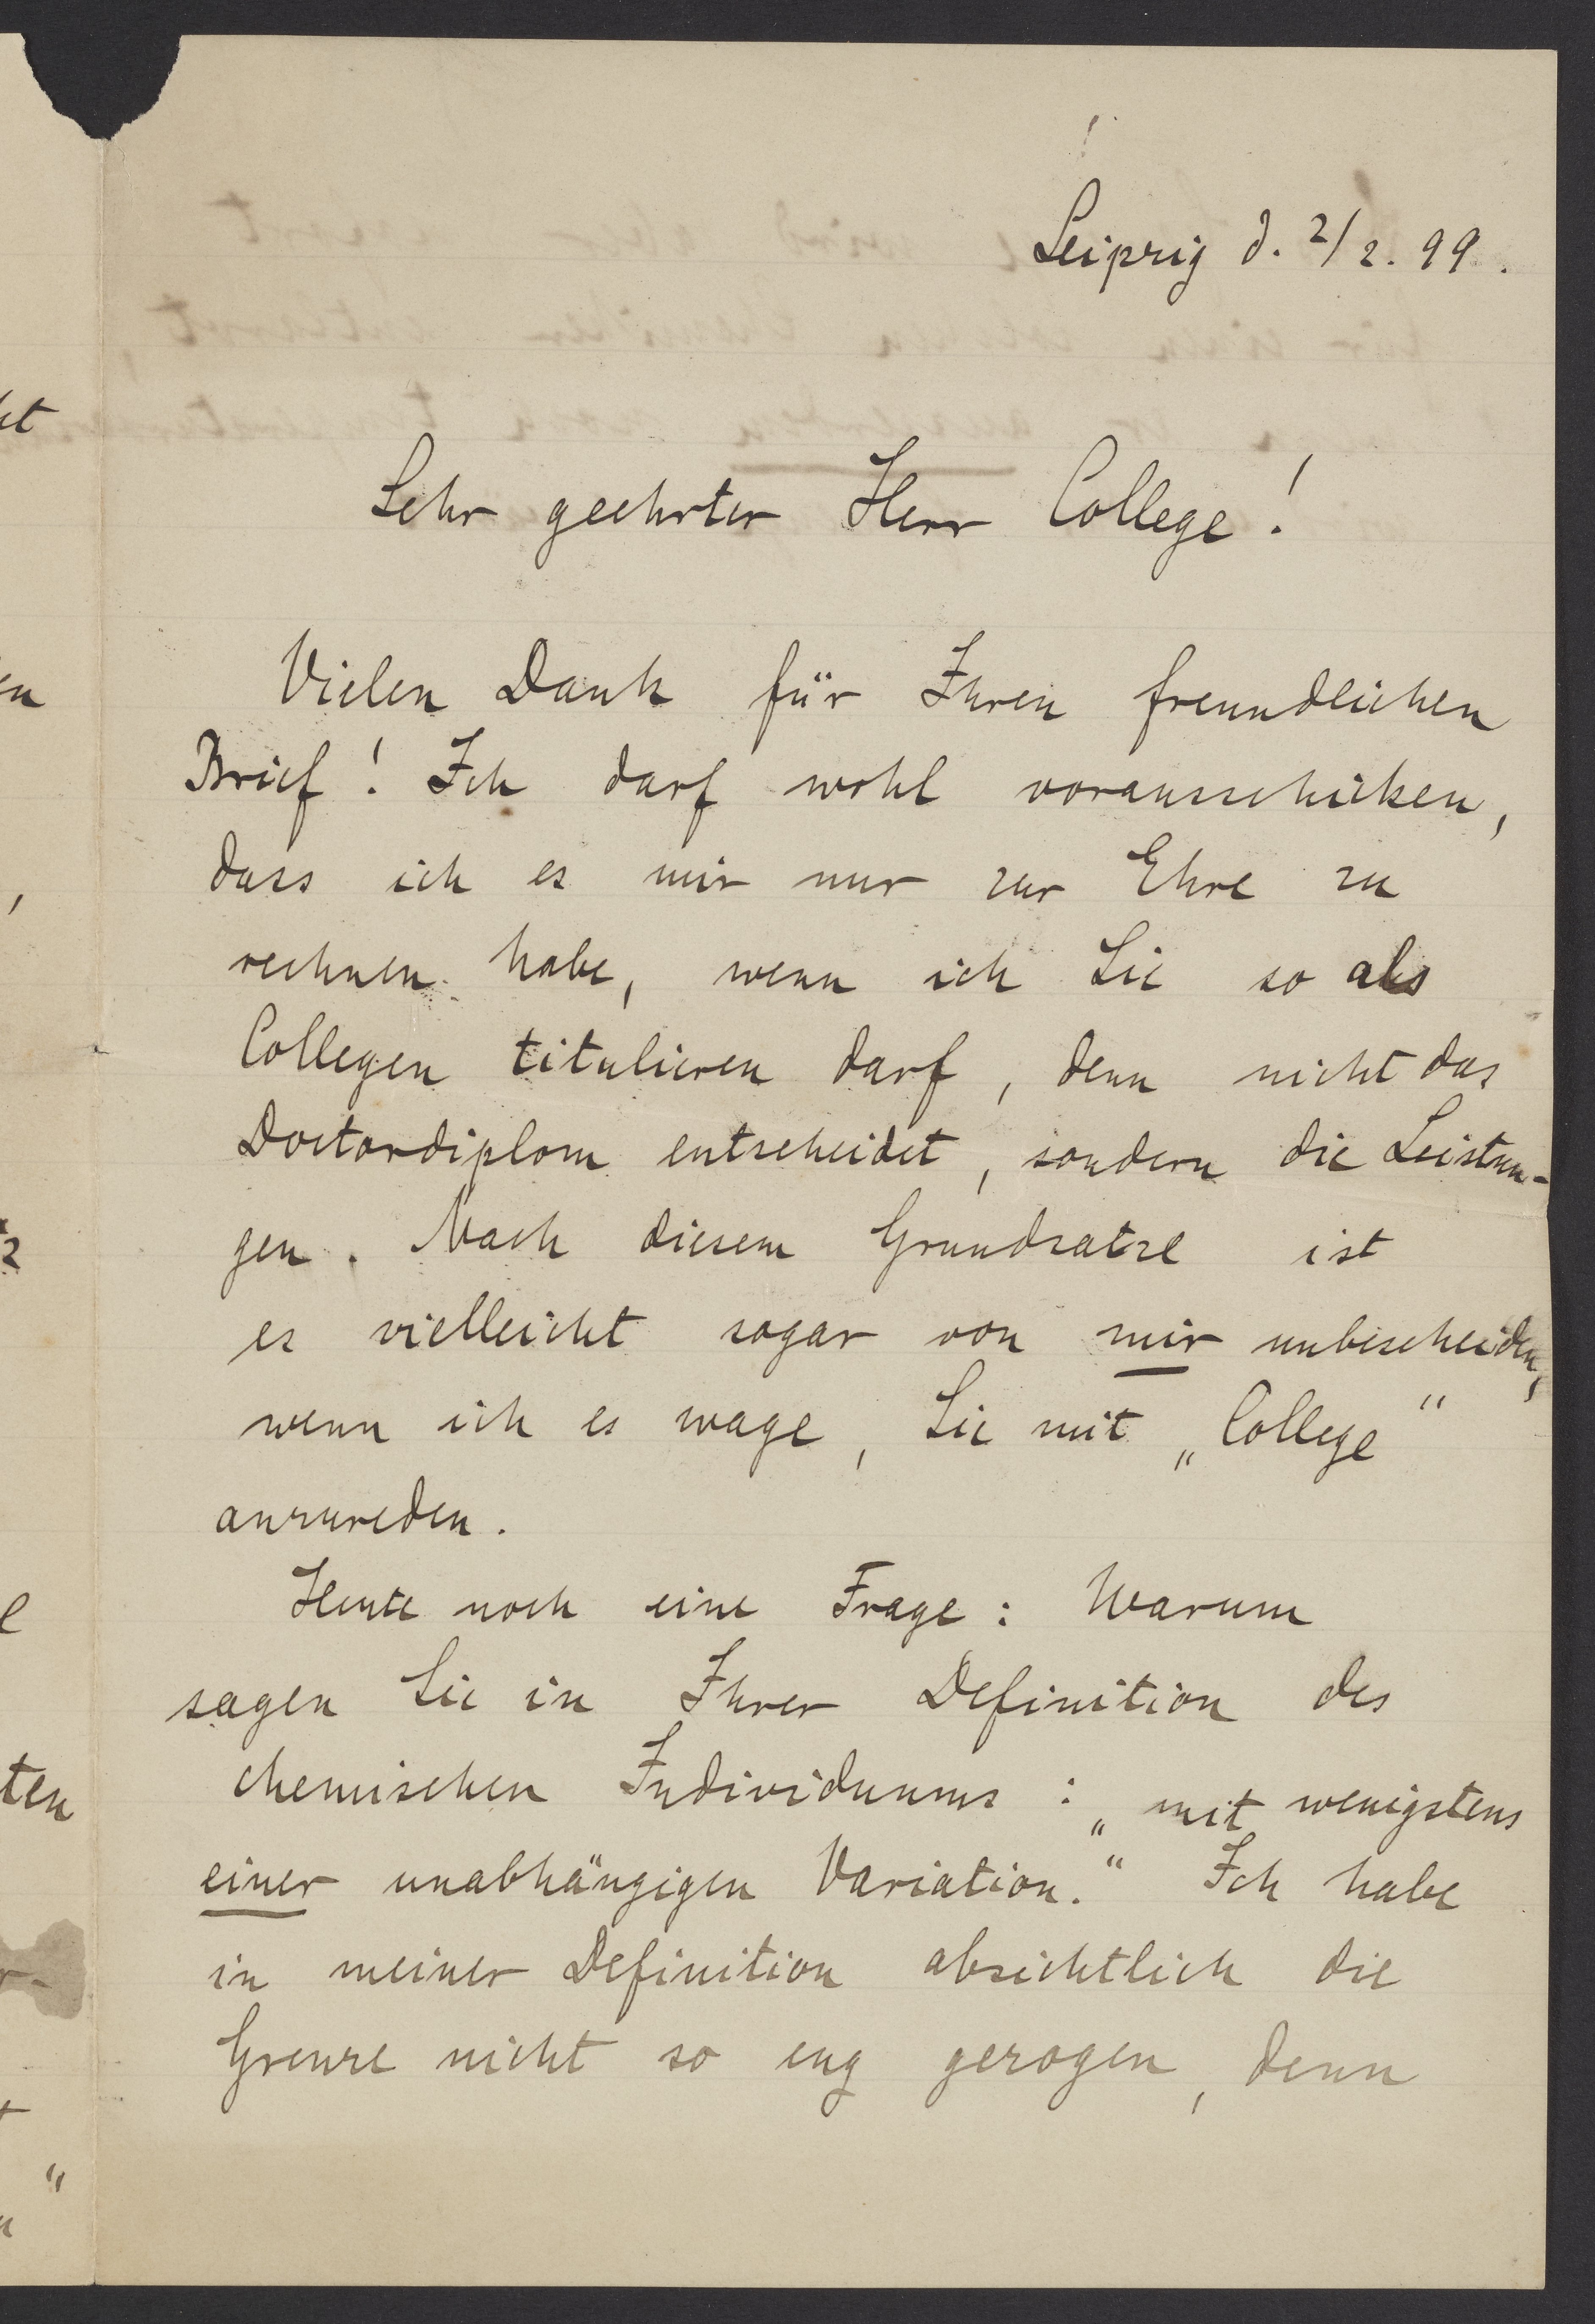 Leipzig d. 2/2. 99.
Sehr geehrter Herr College!
Vielen Dank für Ihren freundlichen
Brief! Ich darf wohl vorausschicken,
dass ich es mir nur zur Ehre zu
rechnen habe, wenn ich Sie so als
Collegen titulieren darf, denn nicht das
Doctordiplom entscheidet, sondern die Leistun-
gen. Nach diesem Grundsatze ist
es vielleicht sogar von mir unbescheiden,
wenn ich es wage, Sie mit „College“
anzureden.
Heute noch eine Frage: Warum
sagen Sie in Ihrer Definition des
chemischen Individuums: „mit wenigstens
einer unabhängigen Variation.“ Ich habe
in meiner Definition absichtlich die
Grenze nicht so eng gezogen, denn